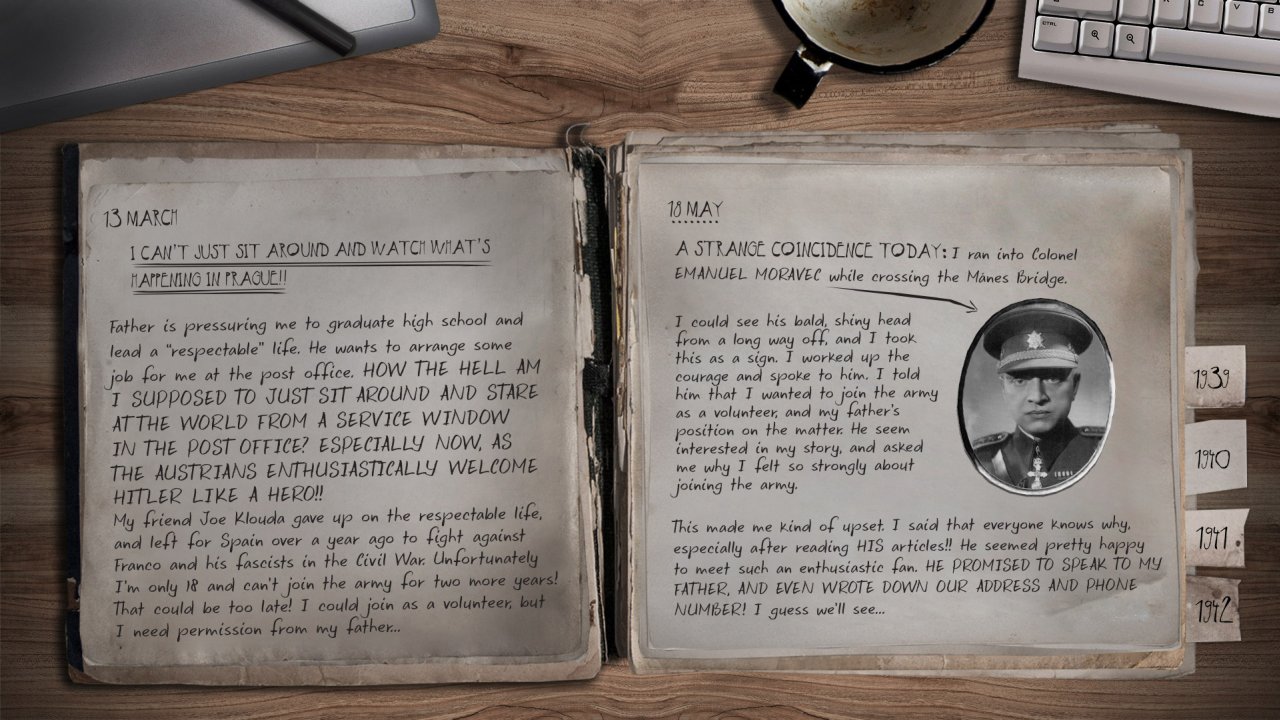 13 MARCH
I CAN'T JUST SIT AROUND AND WATCH WHAT'S
HAPPENING IN PRAGUE!!
Father is pressuring me to graduate high school and
lead a "respectable" life. He wants to arrange some
job for me at the post office. HOW THE HELL AM
I SUPPOSED TO JUST SIT AROUND AND STARE
AT THE WORLD FROM A SERVICE WINDOW
IN THE POST OFFICE? ESPECIALLY NOW, AS
THE AUSTRIANS ENTHUSIASTICALLY WELCOME
HITLER LIKE A HERO!!
My friend Joe Klouda gave up on the respectable life,
and left for Spain over a year ago to fight against
Franco and his fascists in the Civil War. Unfortunately
I'm only 18 and can't join the army for two more years!
That could be too late! I could join as a volunteer, but
I need permission from my father...
18 MAY
A STRANGE COINCIDENCE TODAY: I ran into Colonel
EMANUEL MORAVEC while crossing the Mánes Bridge.
I could see his bald, shiny head
from a long way off, and I took
this as a sign. I worked up the
courage and spoke to him. I told
him that I wanted to join the army
as a volunteer, and my father's
position on the matter. He seem
interested in my story, and asked
me why I felt so strongly about
joining the army.
This made me kind of upset. I said that everyone knows why,
especially after reading HIS articles!! He seemed pretty happy
to meet such an enthusiastic fan. HE PROMISED TO SPEAK TO MY
FATHER, AND EVEN WROTE DOWN OUR ADDRESS AND PHONE
NUMBER! I guess we'll see...
1939
1940
1941
1942
CTRL
C V B